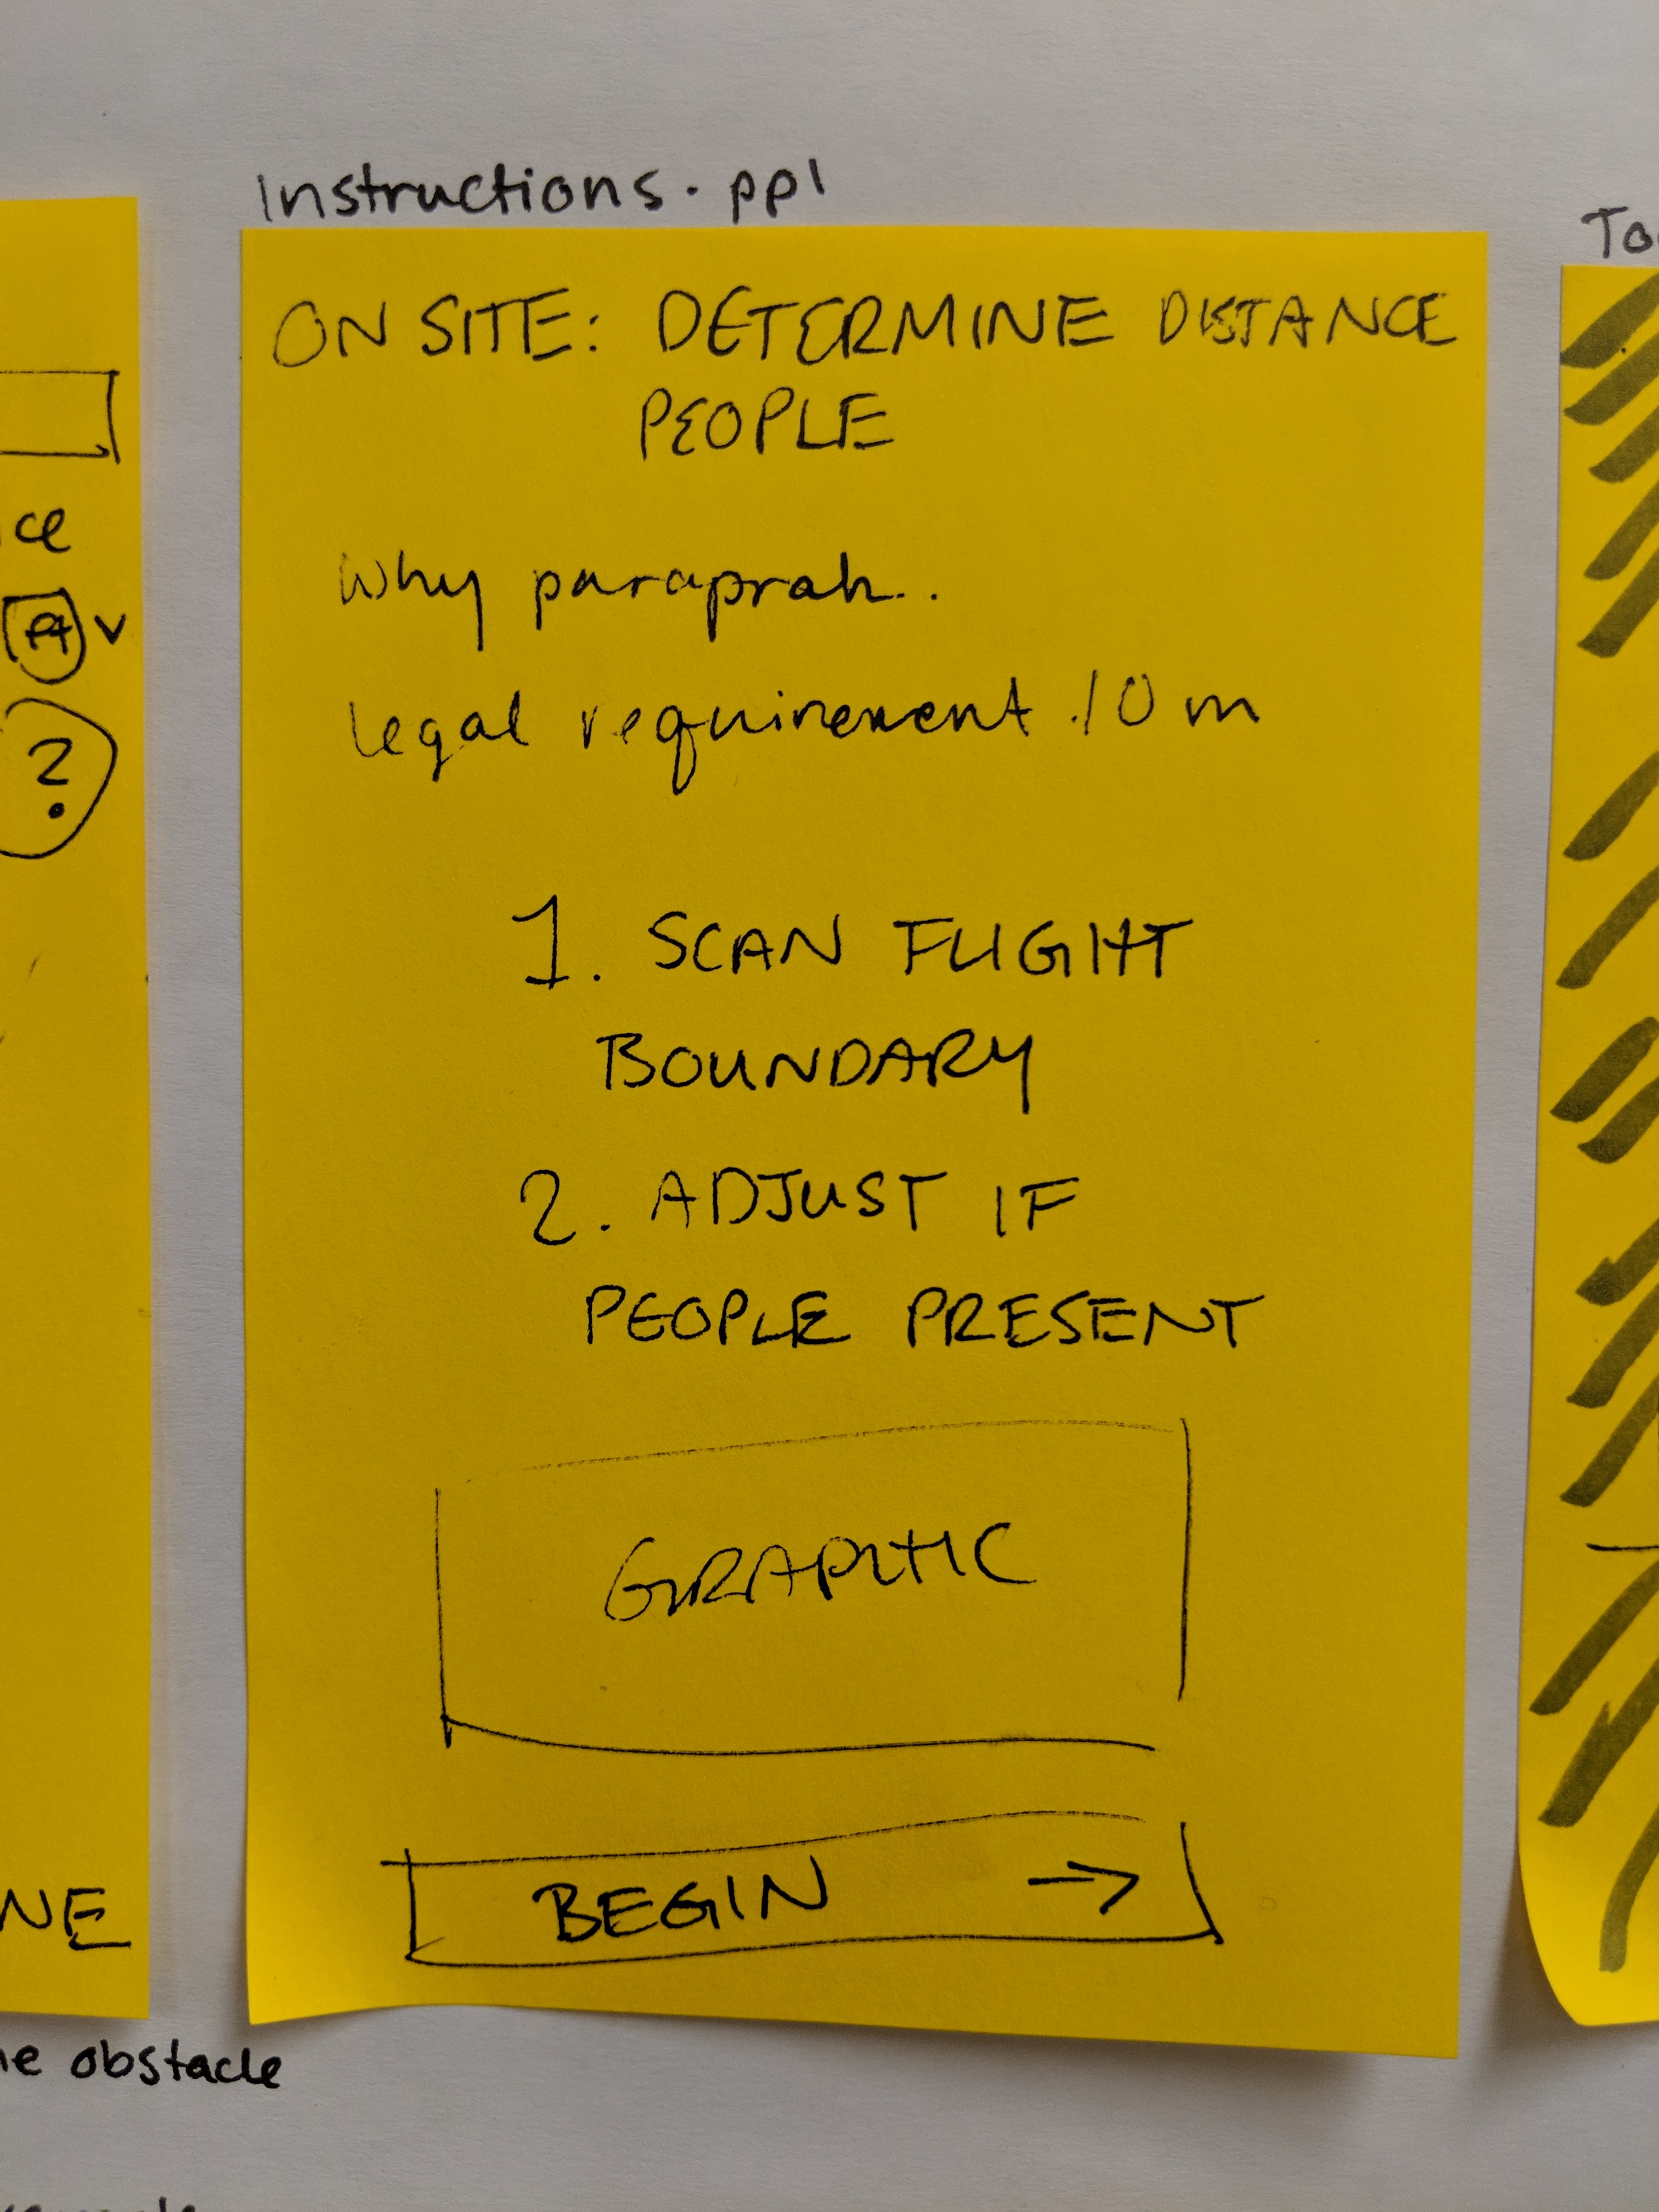 Instructions. ppl
To
ON SITE: DETERMINE DISTANCE
PEOPLE
ce
Why paraprah..
?
legal requirement 10 m
1. SCAN FLIGHT
BOUNDARY
2. ADJUST IF
PEOPLE PRESENT
GRAPHIC
BEGIN →
NE
obstacle